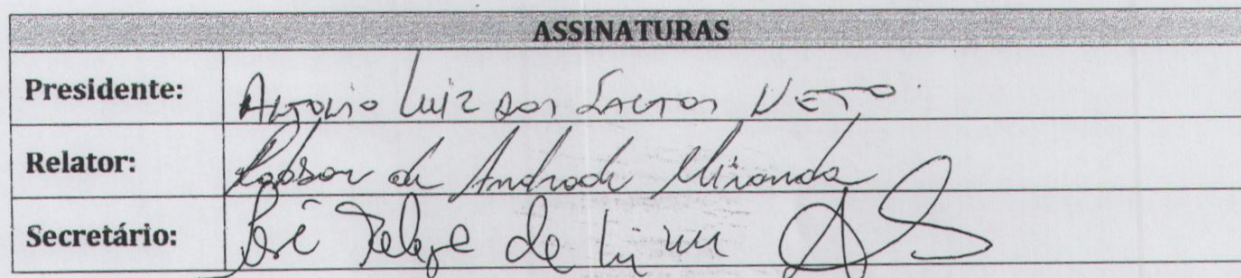 ASSINATURAS
Presidente: Antonio Luiz dos Santos Neto
Relator: Robson de Andrade Miranda
Secretário: José Felipe de Lima